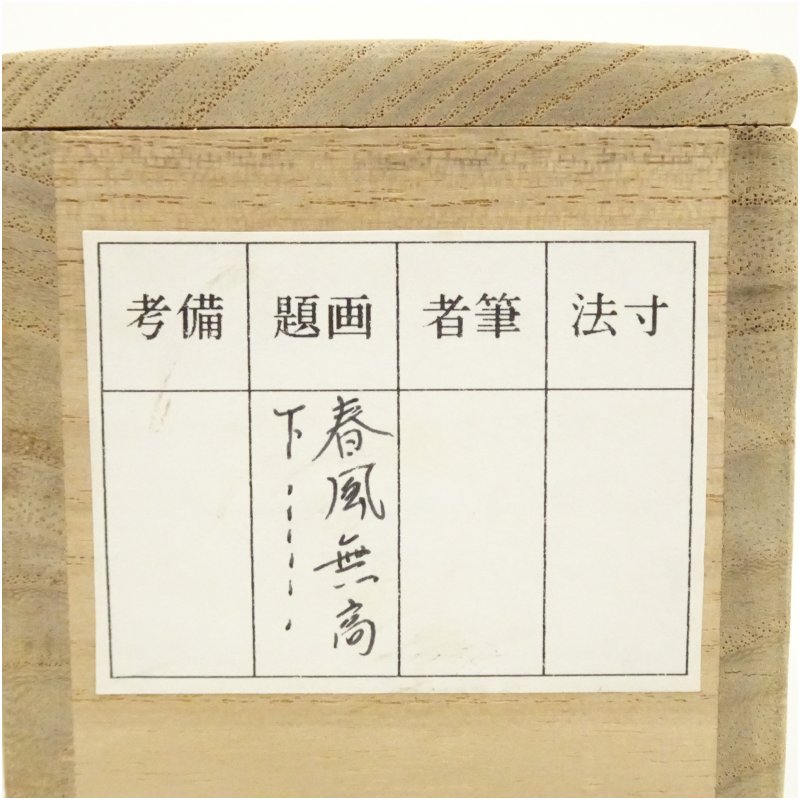 寸法
筆者
画題
備考
春風無高
下·····